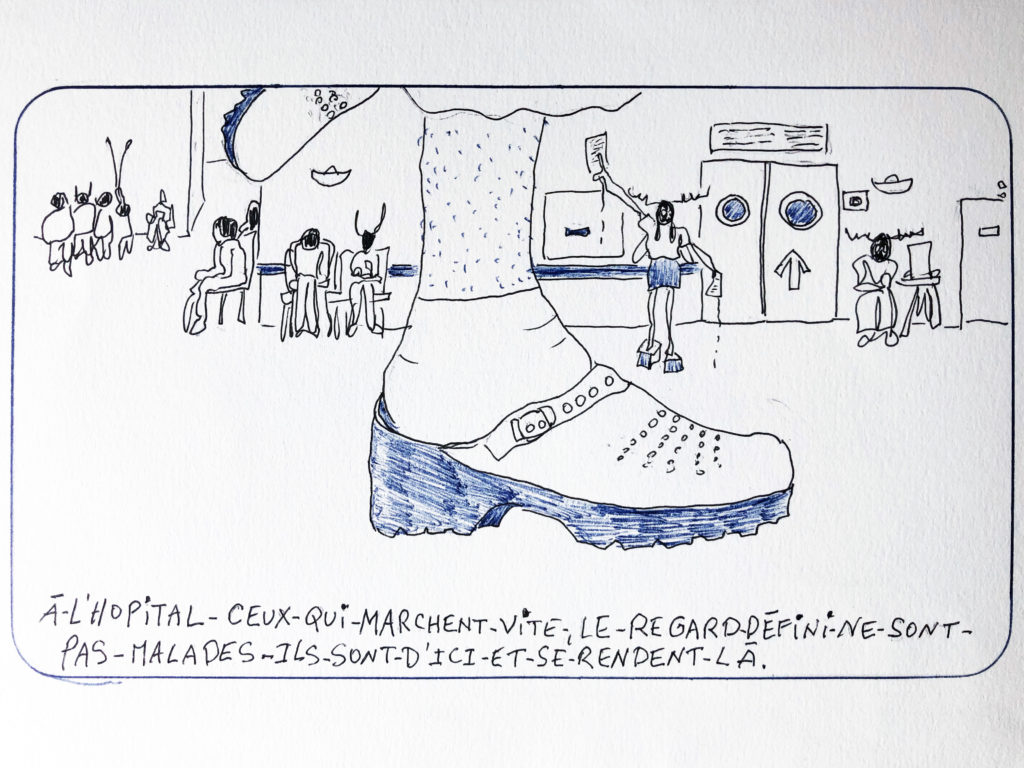 Ā-L'HOPITAL-CEUX-QUI-MARCHENT-VITE, LE-REGARD-DĒFINI-NE-SONT-
PAS-MALADES-ILS-SONT-D'ICI-ET-SE-RENDENT-LĀ.